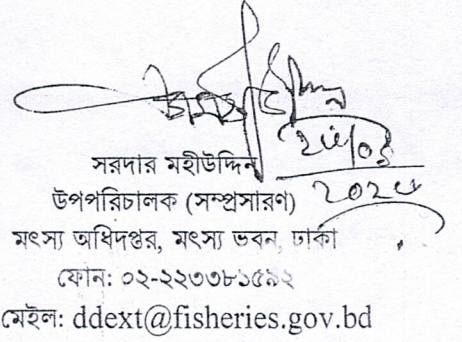 সরদার মহীউদ্দিন
উপপরিচালক (সম্প্রসারণ)
মৎস্য অধিদপ্তর, মৎস্য ভবন, ঢাকা
ফোন: ০২-২২৩৩৮১৫৯২
মেইল: ddext@fisheries.gov.bd